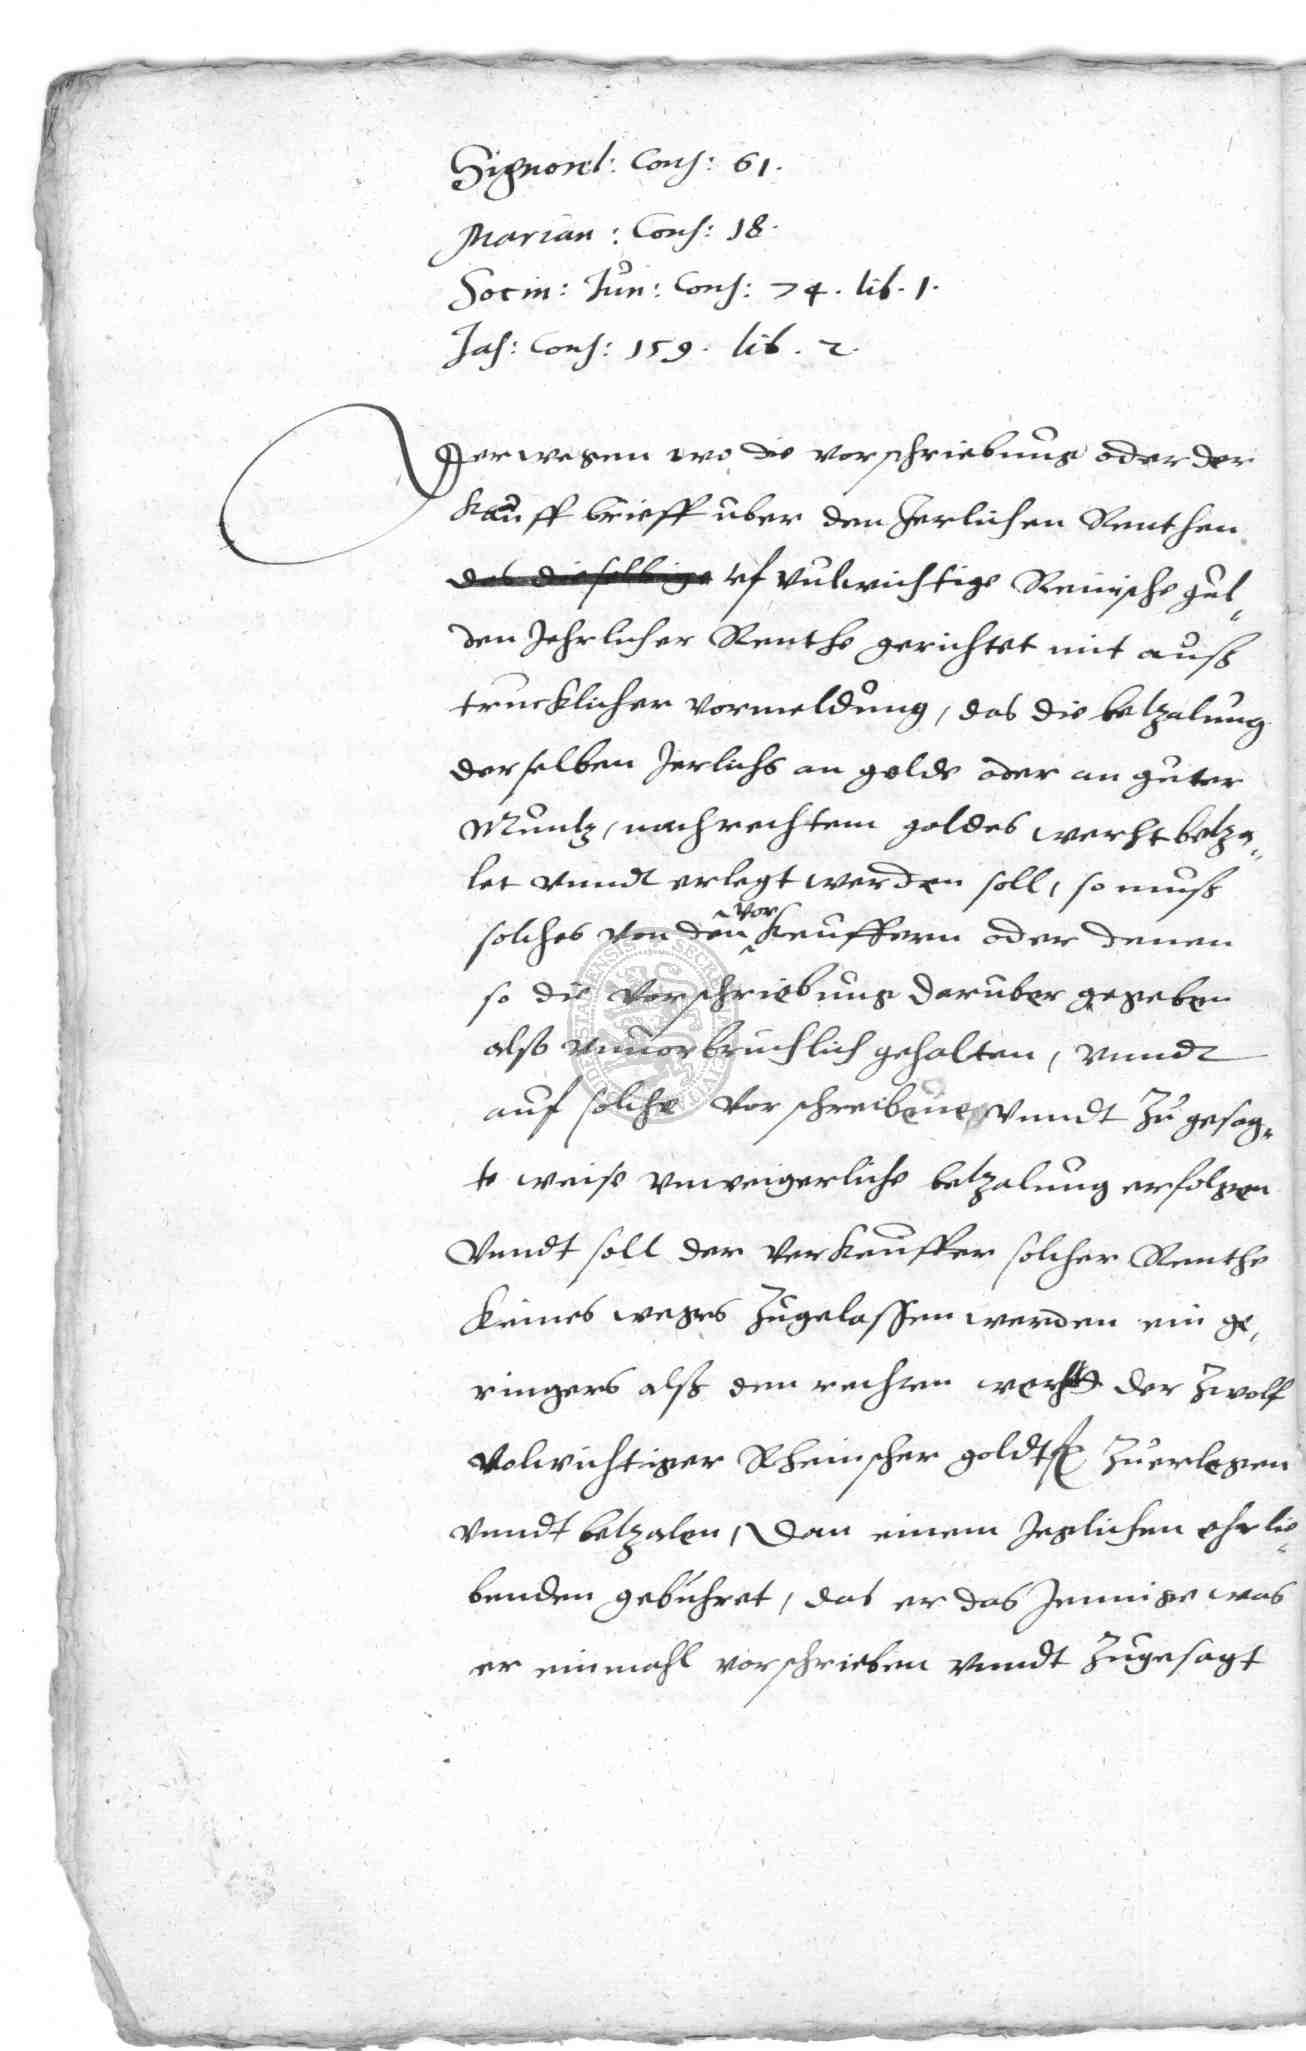 Signorel: Cons: 61.
Marian: Cons: 18.
Socin: Jun: Cons: 74. lib. 1.
Jas: Cons: 159. lib. 2.
Derwegen wo die vorschriebung oder der
Kauff brieff uber den Jerlichen Renthen
das dieselbige uf vulwichtige Reinische gul-
den Jehrlicher Renthe gerichtet mit auß
trucklicher vormeldung, das die betzalung
derselben Jerlichs an golde oder an guter
Muntz, nach rechtem goldes werht betza-
let vnndt erlegt werden soll, so muß
solches von den vorkeuffern oder denen
so die vorschriebung daruber gegeben
also vnuorbruchlich gehalten, vnndt
auf solche vorschriebene vnndt zu gesag-
te weise vnweigerliche betzalung erfolgen
Vnndt soll der verkeuffer solcher Renthe
keines weges zugelassen werden ein ge-
ringers alß den rechten werht der zwolf
volwichtiger Rheinscher goldtfl zuerlegen
vnndt betzalen, Dan einem Jeglichen ehrlie-
benden gebuhret, das er das Jennige was
er einmahl vorschrieben vnndt zugesagt